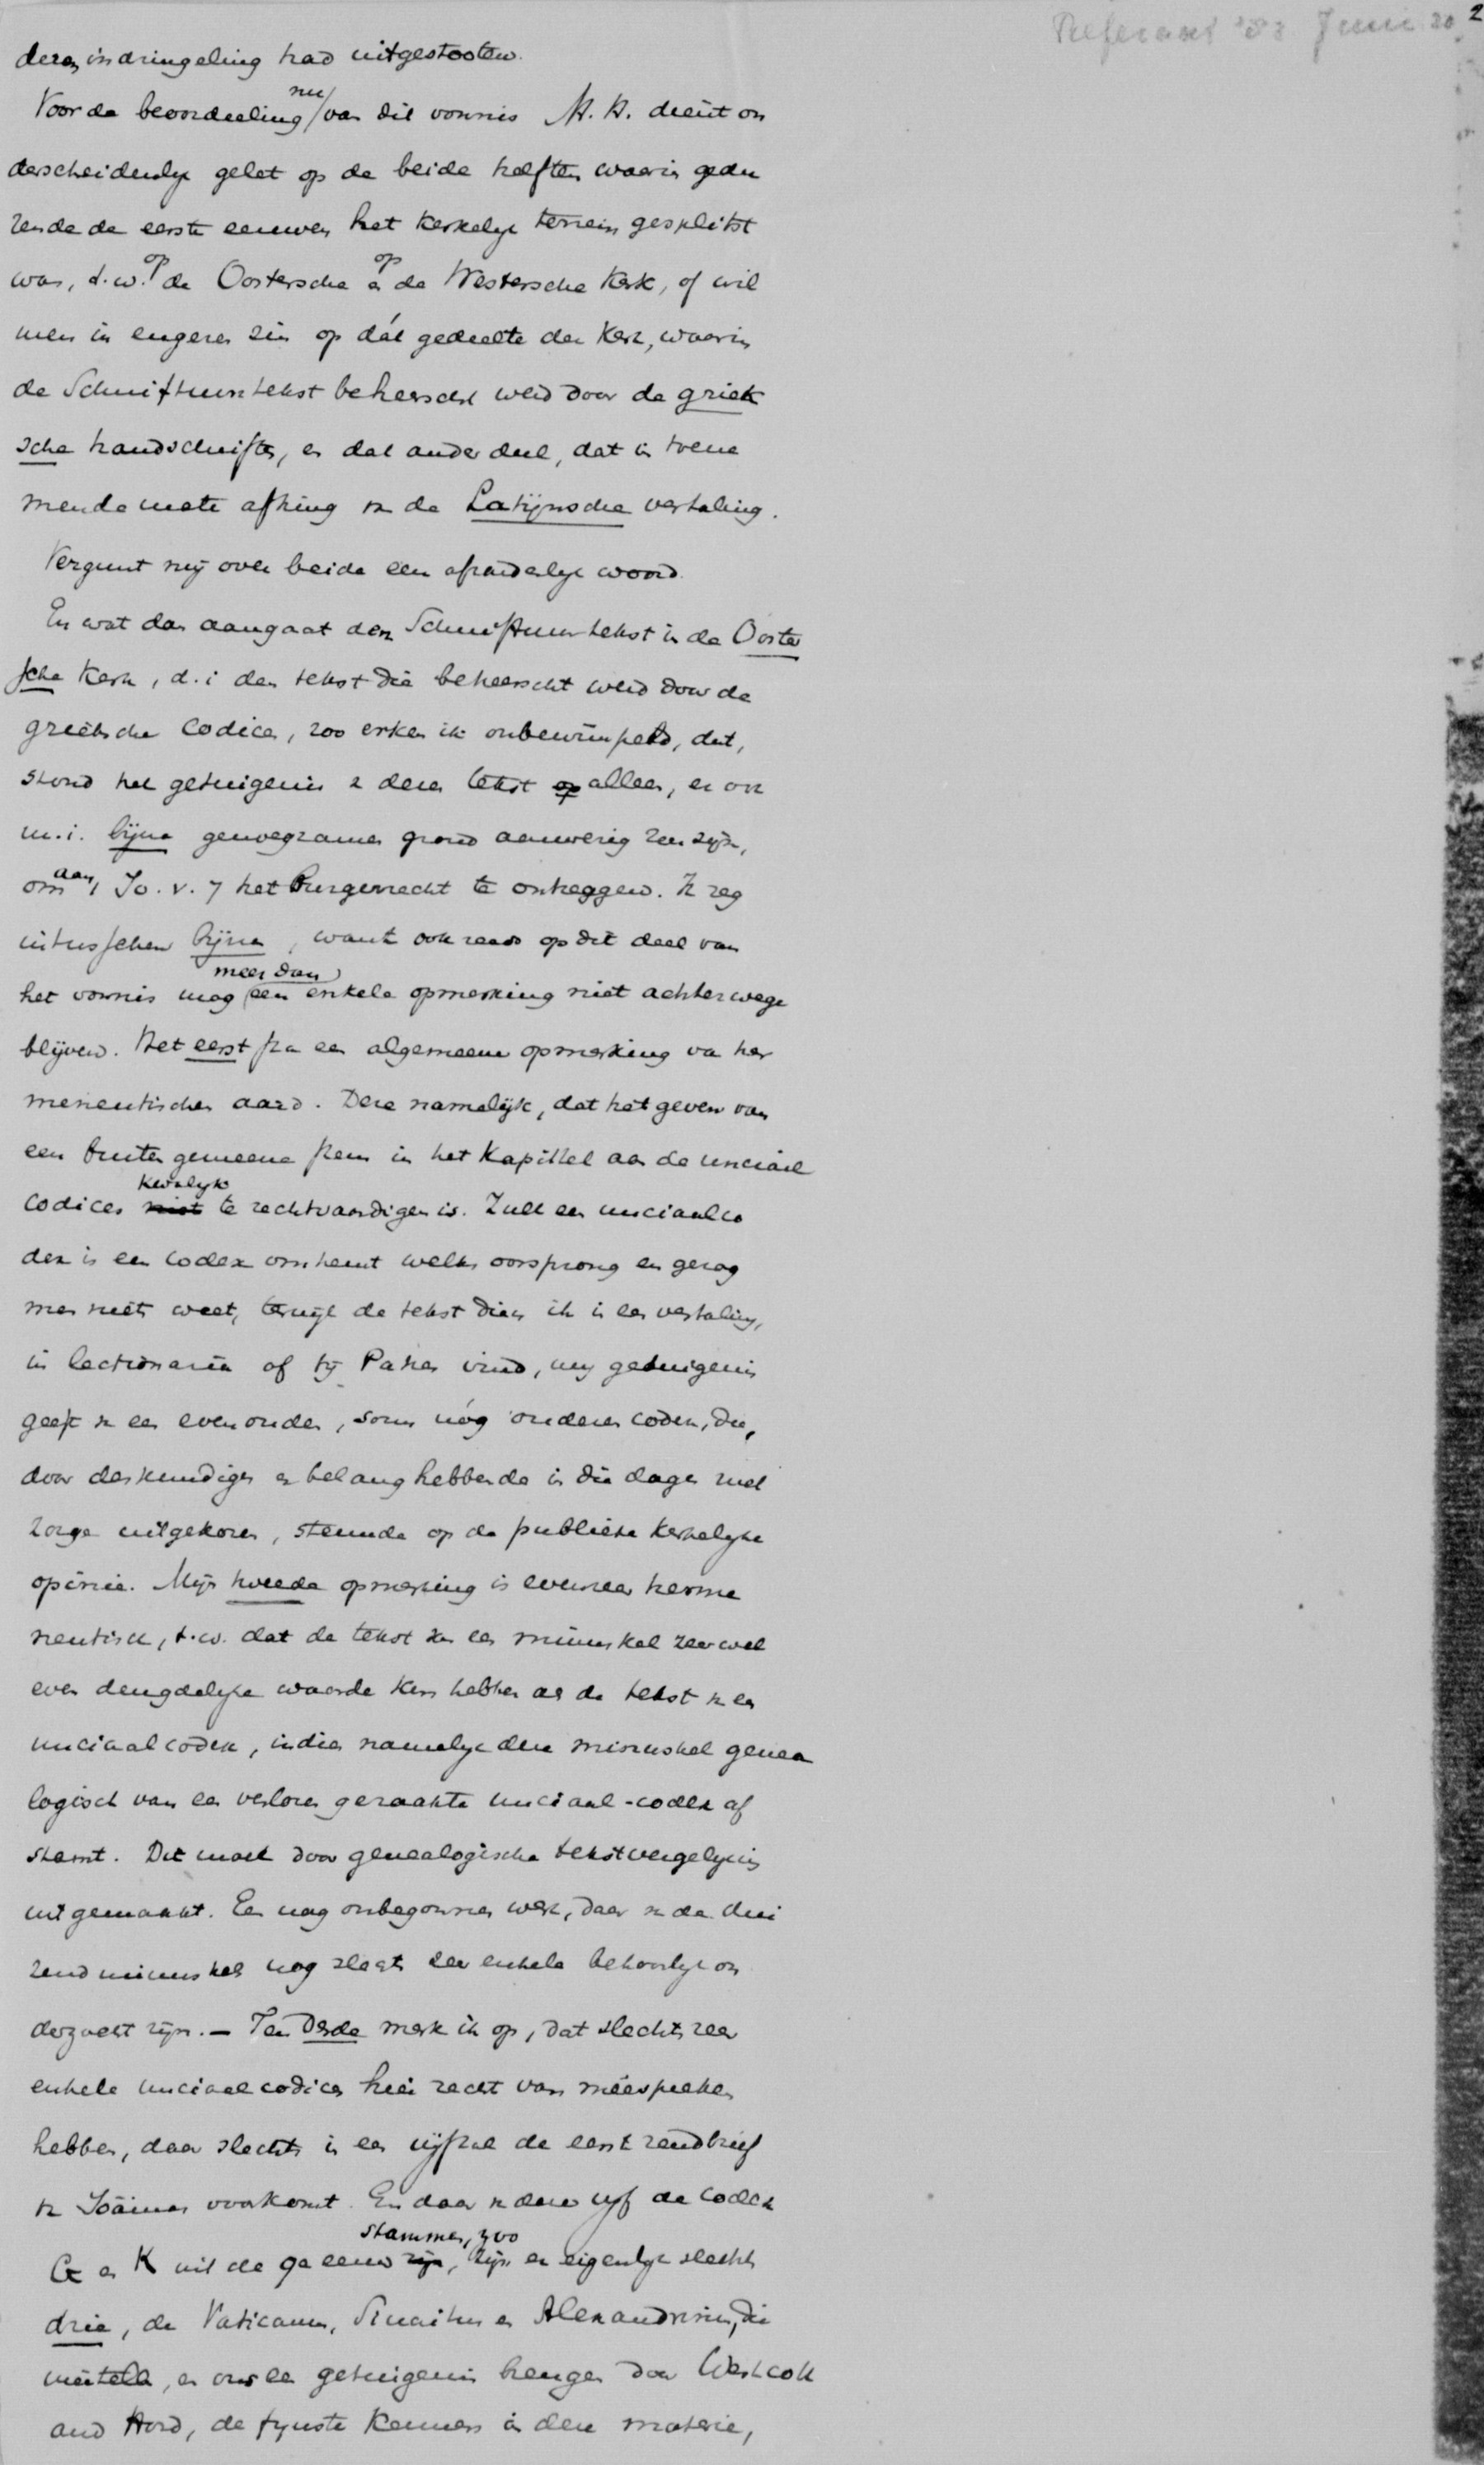 Referaat 's 3 Juni 20 2
dezen indringeling had uitgestooten.
Voor de beoordeeling nu van dit vonnis M. H. dient on
derscheidenlijk gelet op de beide helften waarin gedu
rende de eerste eeuwen het kerkelijk terrein gesplitst
was, t.w. op de Oostersche en op de Westersche Kerk, of wil
men in engeren zin op dát gedeelte der Kerk, waarin
de Schriftuurtekst beheerscht werd door de griek
sche handschriften, en dat ander deel, dat in toene
mende mate afhing v. de Latijnsche vertaling.
Vergunt mij over beide een afzonderlijk woord.
En wat dan aangaat den Schriftuurtekst in de Ooster
sche Kerk, d.i. den tekst die beheerscht werd door de
grieksche Codices, zoo erken ik onbewimpeld, dat,
stond het getuigenis v. dezen tekst op alleen, er on
m.i. bijna genoegzame grond aanwezig zou zijn,
om aan 1 Jo. v. 7 het burgerrecht te ontzeggen. Ik zeg
intusschen bijna, want ook reeds op dit deel van
het vonnis mag meer dan een enkele opmerking niet achterwege
blijven. Het eerst ga een algemeene opmerking van her
meneutischen aard. Deze namelijk, dat het geven van
een buitengemeene stem in het Kapittel aan de unciaal
codices niet kwalijk te rechtvaardigen is. Zulk een unciaalco
dex is een codex omtrent welks oorsprong en gezag
men niets weet, terwijl de tekst dien ik in een vertaling,
in lectionaria of bij Patres vind, mij getuigenis
geeft v. een even ouden, soms nóg ouderen codex, die,
door deskundigen en belanghebbenden in die dagen met
zorge uitgekozen, steunde op de publieke kerkelijke
opinie. Mijn tweede opmerking is evenzeer herme
neutisch, t.w. dat de tekst van een minuskel zeer wel
even deugdelijke waarde kan hebben als de tekst v. een
unciaalcodex, indien namelijk deze minuskel genea
logisch van een verloren geraakte unciaal-codex af
stamt. Dit moet door genealogische tekstvergelijking
uitgemaakt. Een nog onbegonnen werk, daar v. de dui
zend minuskels nog slechts zeer enkele behoorlijk on
derzocht zijn. — Ten Derde merk ik op, dat slechts zeer
enkele unciaalcodices hier recht van meêspreken
hebben, daar slechts in een vijftal de eerste zendbrief
v. Joannes voorkomt. En daar v. deze vijf de Codex
G en K uit de 9e eeuw zijn stammen, zoo zijn er eigenlijk slechts
drie, de Vaticanus, Sinaiticus en Alexandrinus, die
meêtellen, en ons een getuigenis brengen door Westcott
and Hord, de fijnste kenners in deze materie,